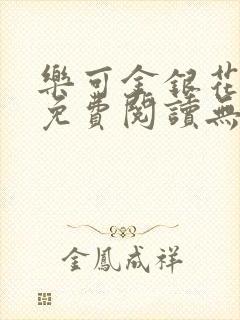 樂可金銀花
免費閱讀無
金鳳成祥